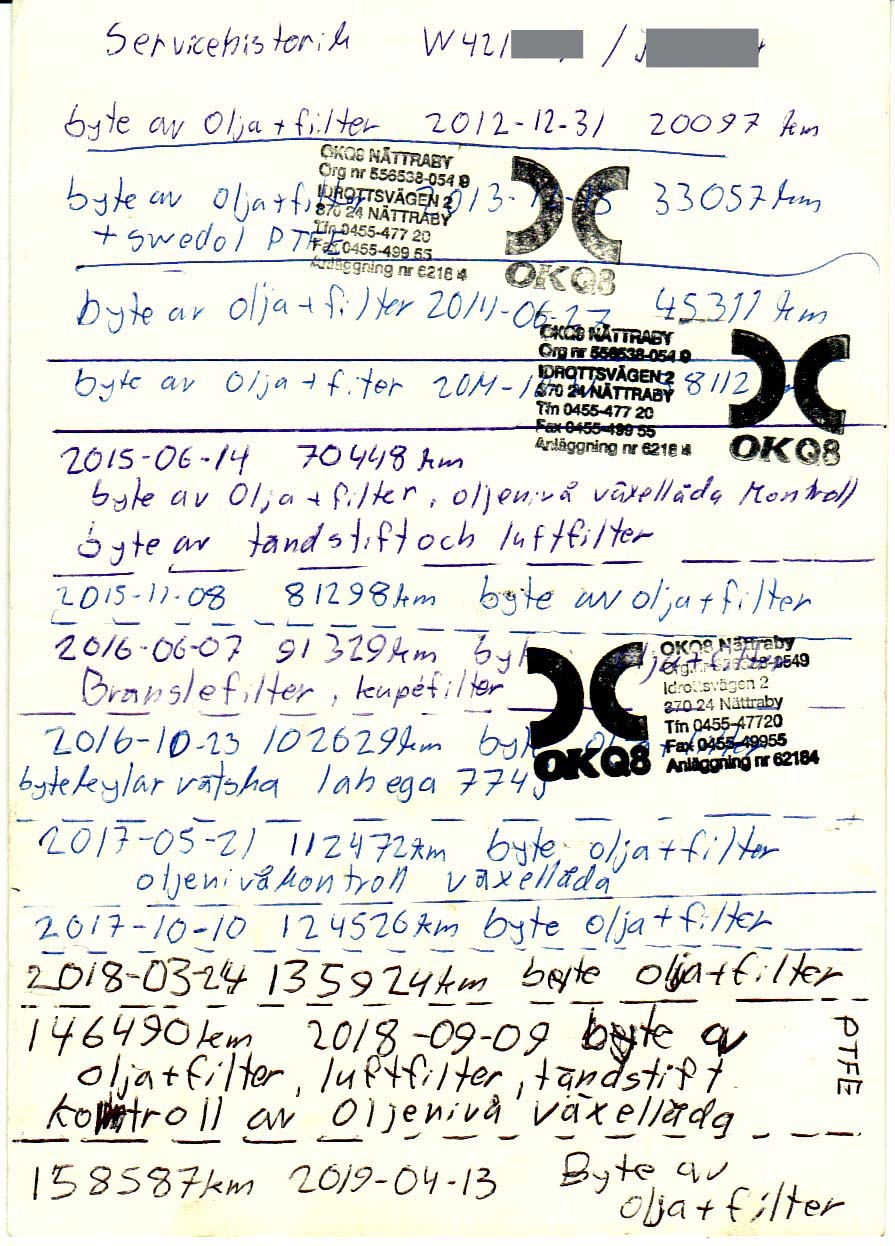 Servicehistorik W421 /
byte av olja+filter 2012-12-31 20097 km
OKQ8 NÄTTRABY
Org nr 556538-054 9
IDROTTSVÄGEN 2
370 24 NÄTTRABY
Tfn 0455-477 20
Fax 0455-499 55
Anläggning nr 6218 4
OKQ8
byte av olja+filter 33057 km
+ swedol PTFE
byte av olja+filter 2014-06-27 45311 km
OKQ8 NÄTTRABY
Org nr 556538-054 9
IDROTTSVÄGEN 2
370 24 NÄTTRABY
Tfn 0455-477 20
Fax 0455-499 55
Anläggning nr 6218 4
OKQ8
byte av olja+filter
2015-06-14 70448 km
byte av olja+filter, oljenivå växellåda kontroll
byte av tändstift och luftfilter
2015-11-08 81298 km byte av olja+filter
2016-06-07 91329 km byte olja+filter
Bränslefilter, kupéfilter
OKQ8 Nättraby
Idrottsvägen 2
370 24 Nättraby
Tfn 0455-47720
Fax 0455-49955
Anläggning nr 62184
OKQ8
2016-10-23 102629 km byte olja+filter
byte kylar vätska lahega 774
2017-05-21 112472 km byte olja+filter
oljenivåkontroll växellåda
2017-10-10 124526 km byte olja+filter
2018-03-24 135924 km byte olja+filter
146490 km 2018-09-09 byte av
PTFE
olja+filter, luftfilter, tändstift
kontroll av oljenivå växellåda
158587 km 2019-04-13 Byte av
olja+filter